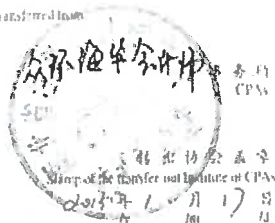 transferred from
众环海华会计师
事务所
CPAs
转出协会盖章
Stamp of the transfer-out Institute of CPAs
2013年1月17日